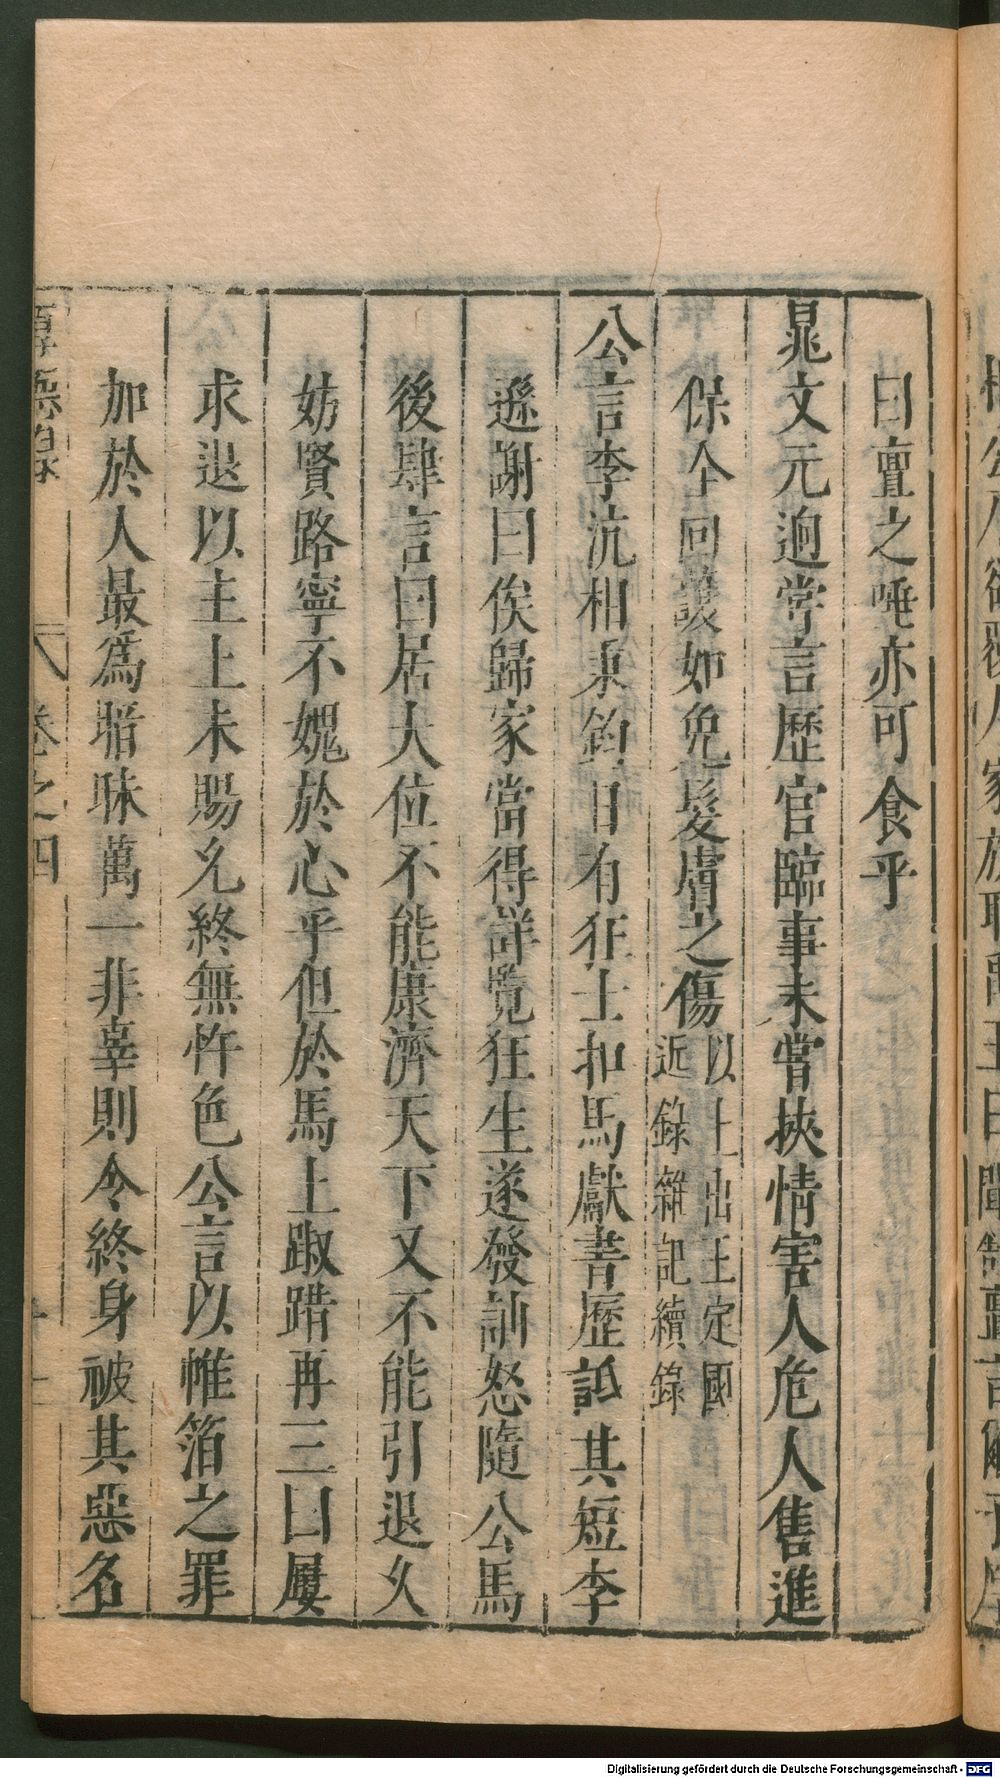 曰亶之唾亦可食乎
晁文元逈常言歷官臨事未嘗挾情害人危人售進
保全回護如免髮膚之傷以上出王定國近錄雜記續錄
公言李沆相秉鈞日有狂士扣馬獻書歷詆其短李
遜謝曰俟歸家當得詳覽狂生遂發訕怒隨公馬
後肆言曰居大位不能康濟天下又不能引退久
妨賢路寧不媿於心乎但於馬上踧踖再三曰屢
求退以主上未賜允終無忤色公言以帷箔之罪
加於人最爲暗昧萬一非辜則令終身被其惡名
卷之四
Digitalisierung gefördert durch die Deutsche Forschungsgemeinschaft - DFG